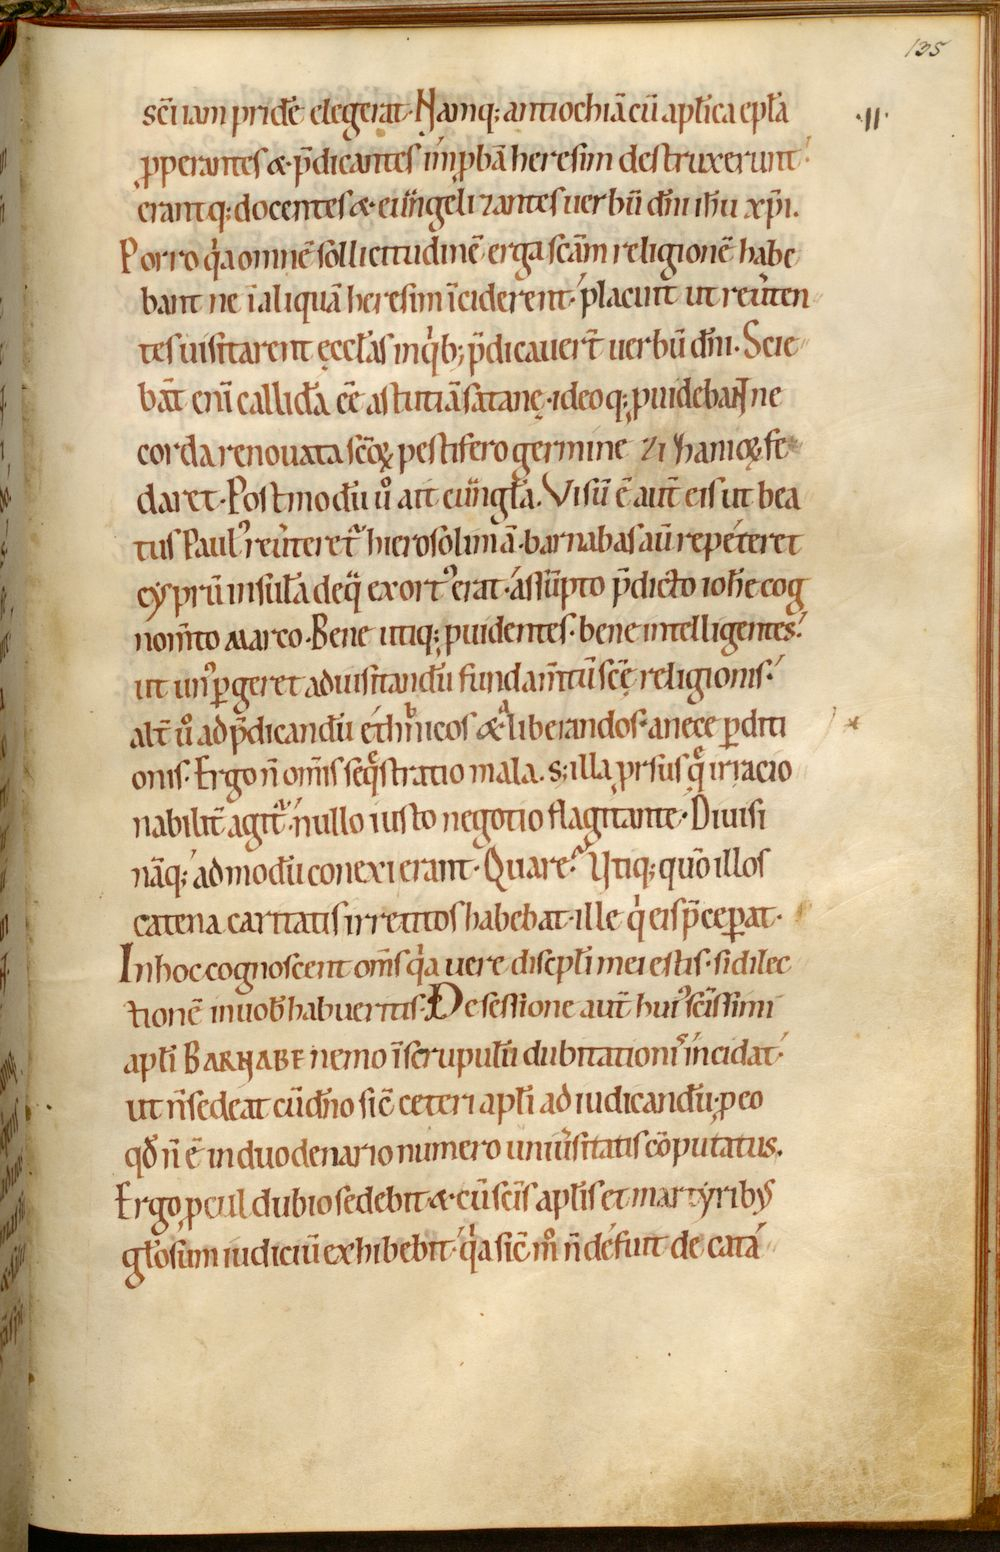 135
sc̄i iam pridē elegerat. Namq; antiochiā cū apl̄ica epl̄a ·II·
ꝓperantes & p̄dicantes īprobā heresim destruxerunt
erantq; docentes & eūngelizantes uerbū dn̄i ih̄u xp̄i.
Porro q̇a omnē sollicitudinē erga scām religionē habe
bant ne ī aliquā heresim īciderent. placuit ut reu̓ten
tes uisitarent ęccl̄as in q̇b; p̄dicauer̄t uerbū dn̄i. Scie
bāt enī callidā eē astutiā satanę. ideoq; ꝓuidebant ne
corda renouata sc̄oꝝ pestifero germine zizanioꝝ fe
daret. Postmodū ů ait eūngl̄a. Visū ē aut̄ eis ut bea
tus Paul᾿ reu̓teret᷑ hierosolimā. barnabas aū repeteret
cyprū insulā de q̄ exort᾿ erat. assūpto p̄dicto ioh̄e cog
nom̄to MARCO. Bene utiq; ꝓuidentes. bene intelligentes.
ut un᾿ ꝑgeret ad uisitandū fundam̄tū sc̄ę religionis.
alt̄ ů ad p̄dicandū ethnicos & liberandos a nece ꝑditi
onis. Ergo n̄ om̄is seq̄stratio mala. s; illa ꝓrsus q̄ irracio
nabilit̄ agit᷑. nullo iusto negotio flagitante. Diuisi
nāq; ad modū conexi erant. Quare? Utiq; quō illos
catena caritatis irretitos habebat. ille q̇ eis p̄ceperat.
In hoc cognoscent om̄s q̇a uere discipl̄i mei estis. si dilec
tionē in uob̄ habueritis. De sessione aut̄ hui᾿ sc̄issimi
apl̄i BARNABE nemo ī scrupulū dubitationis incidat.
ut n̄ sedeat cū dn̄o sic̄ ceteri apl̄i ad iudicandū; ꝓ eo
qd̄ n̄ ē in duodenario numero uniu̓sitatis cōputatus.
Ergo ꝓcul dubio sedebit & cū sc̄is apl̄is et martyrib;
gl̄osum iudiciū exhibebit. q̇a sic̄ m̊ n̄ defuit de cata